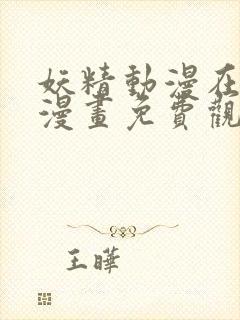 妖精動漫在
漫畫免費觀
王曄